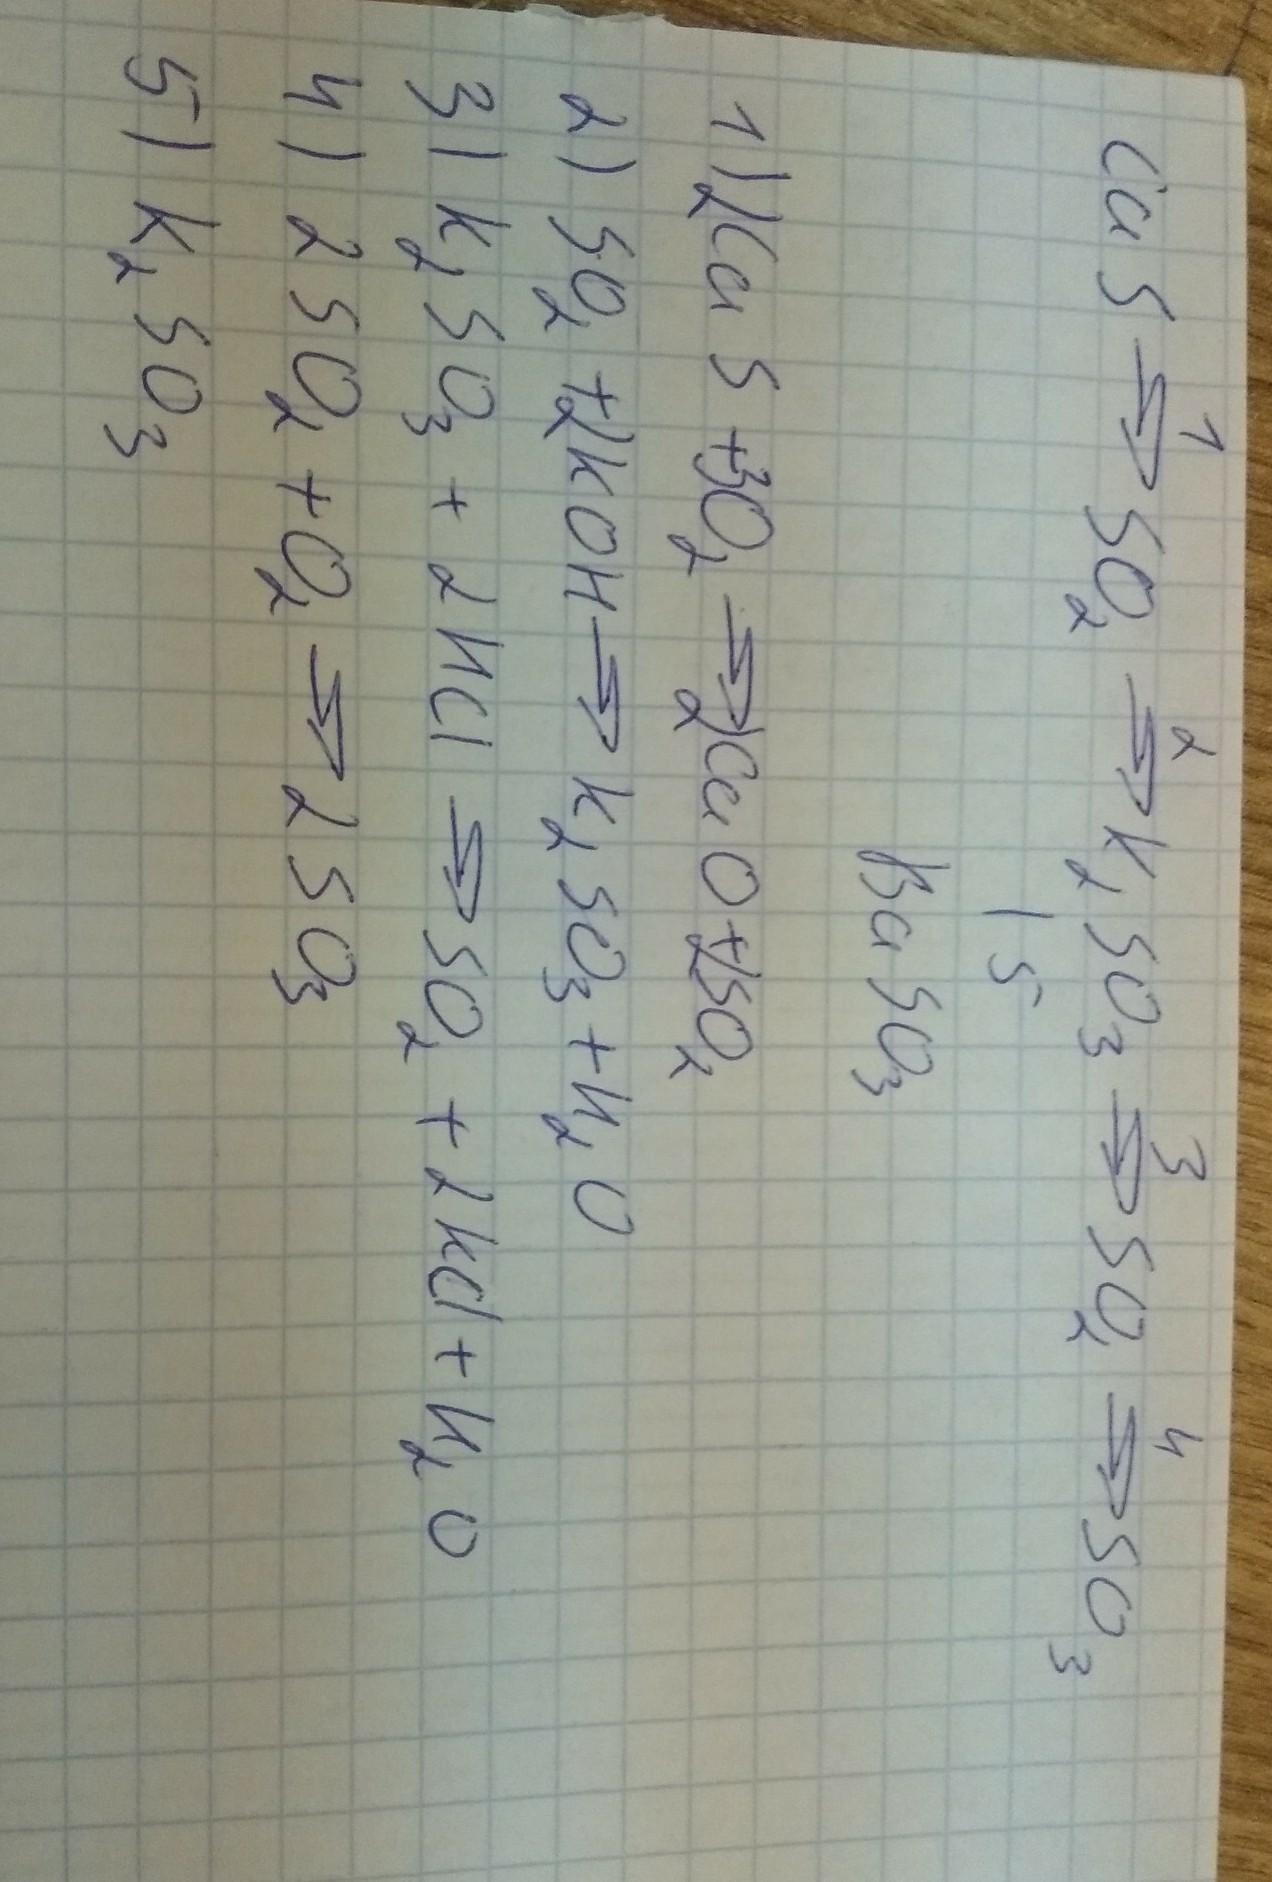 1 2 3 4
CuS → SO₂ → K₂SO₃ → SO₂ → SO₃
| 5
BaSO₃
1) 2CuS + 3O₂ → 2CuO + 2SO₂
2) SO₂ + 2KOH → K₂SO₃ + H₂O
3) K₂SO₃ + 2HCl → SO₂ + 2KCl + H₂O
4) 2SO₂ + O₂ → 2SO₃
5) K₂SO₃